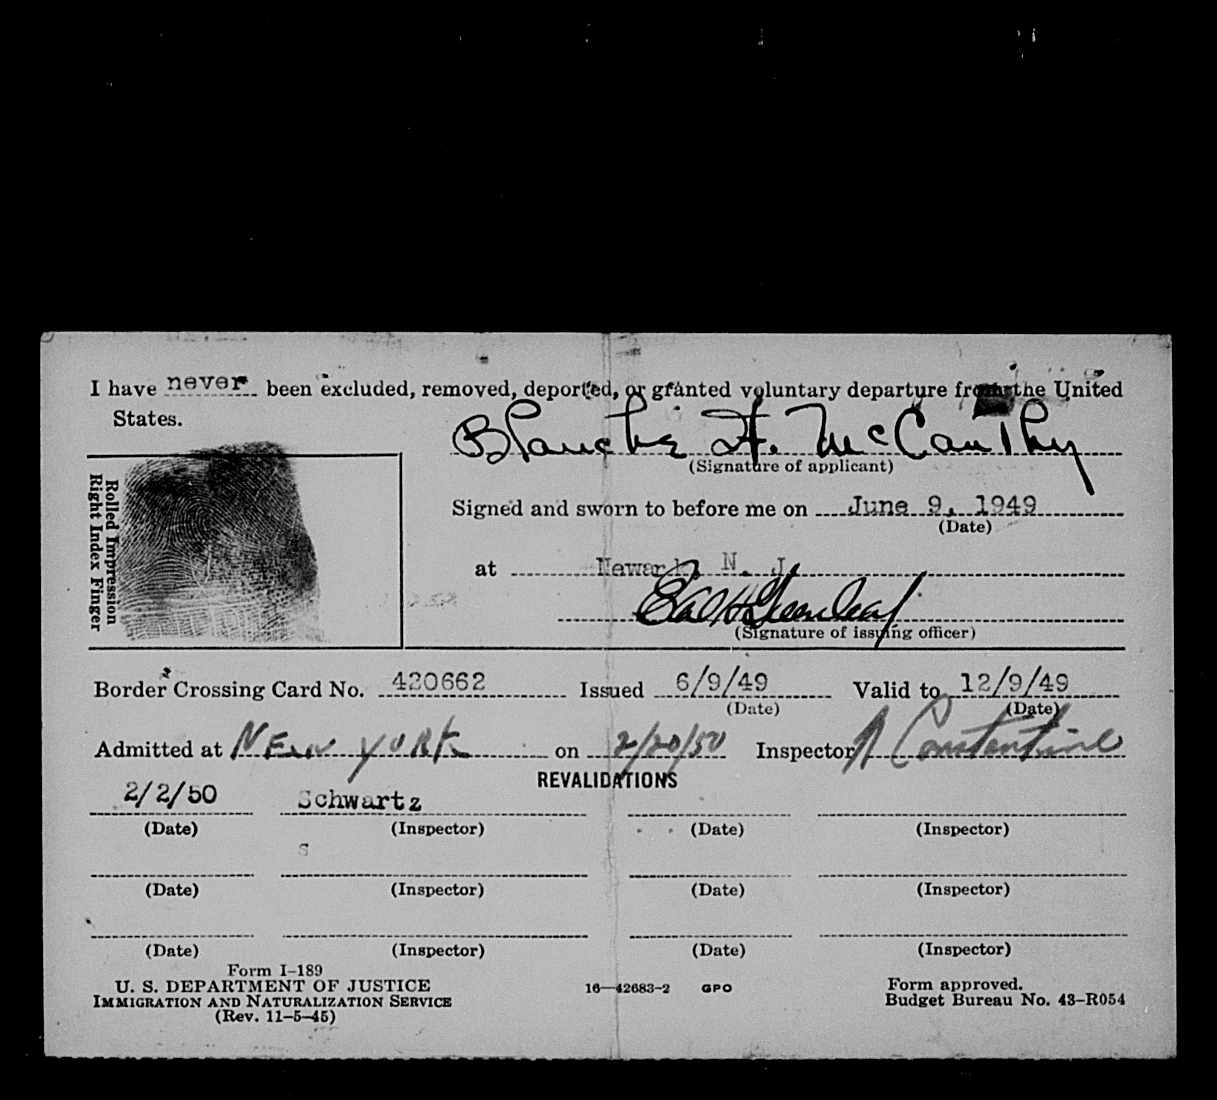 I have never been excluded, removed, deported, or granted voluntary departure from the United
States.
Blanche H. McCarthy
(Signature of applicant)
Rolled Impression
Right Index Finger
Signed and sworn to before me on June 9, 1949
(Date)
at Newark, N. J.
(Signature of issuing officer)
Border Crossing Card No. 420662 Issued 6/9/49 Valid to 12/9/49
(Date) (Date)
Admitted at NEW YORK on 2/20/50 Inspector Constantine
REVALIDATIONS
2/2/50 Schwartz
(Date) (Inspector) (Date) (Inspector)
S
(Date) (Inspector) (Date) (Inspector)
(Date) (Inspector) (Date) (Inspector)
Form I-189
U. S. DEPARTMENT OF JUSTICE 16—42683-2 GPO Form approved.
IMMIGRATION AND NATURALIZATION SERVICE Budget Bureau No. 43-R054
(Rev. 11-5-45)